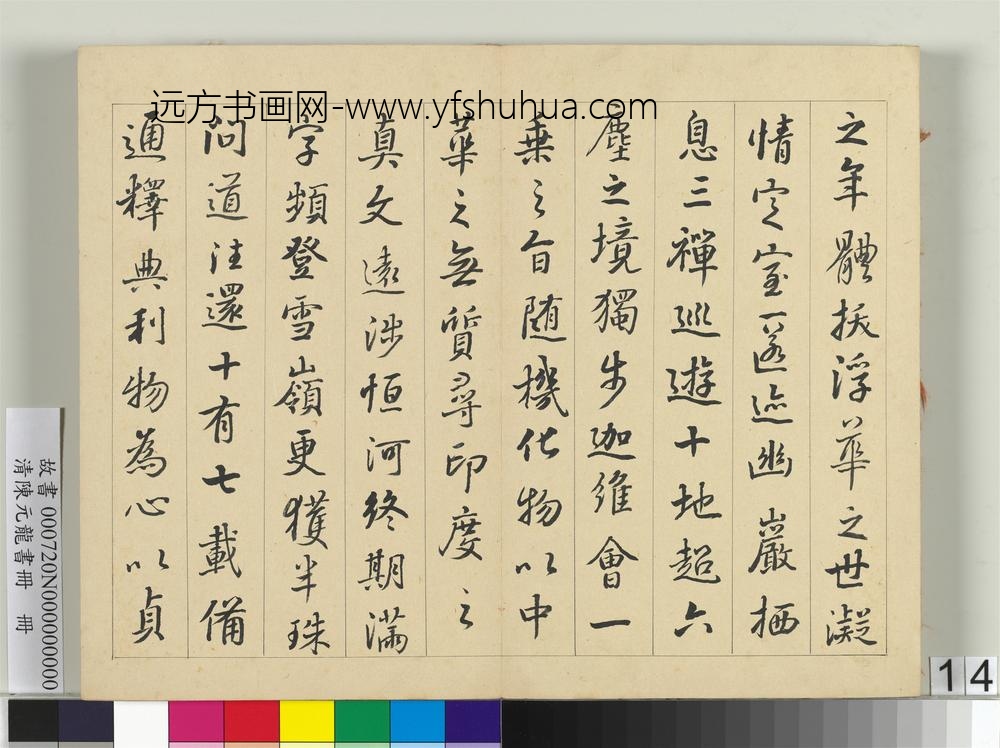 远方书画网-www.yfshuhua.com
之年體拔浮華之世凝
情定室匿迹幽巖栖
息三禪巡遊十地超六
塵之境獨步迦維會一
乗之旨随機化物以中
華之無質尋印度之
真文遠涉恒河終期滿
字頻登雪嶺更獲半珠
問道往還十有七載備
通釋典利物為心以貞
故書 000720N000000000
清陳元龍書冊 冊
14